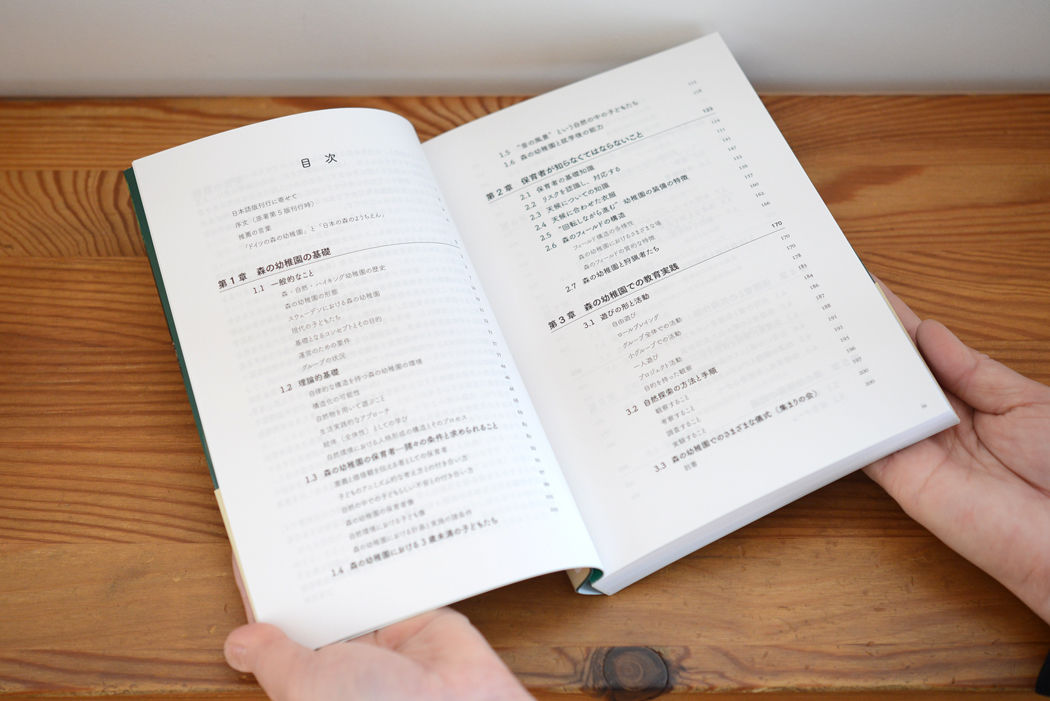 目次
日本語版刊行に寄せて
序文（原著第5版刊行時）
推薦の言葉
「ドイツの森の幼稚園」と「日本の森のようちえん」
第1章 森の幼稚園の基礎
1.1 一般的なこと
森・自然・ハイキング幼稚園の歴史
森の幼稚園の形態
スウェーデンにおける森の幼稚園
現代の子どもたち
基礎となるコンセプトとその目的
運営のための要件
グループの状況
1.2 理論的基礎
自律的な構造を持つ森の幼稚園の環境
構造化の可能性
自然物を用いて遊ぶこと
生活実践的なアプローチ
総体（全体性）としての学び
自然環境における人格形成の構造とそのプロセス
1.3 森の幼稚園の保育者―諸々の条件と求められること
意義と価値観を伝える者としての保育者
子どものアニミズム的な考え方との付き合い方
自然の中での子どもらしい不安との付き合い方
森の幼稚園の保育者像
自然環境における子ども像
森の幼稚園における計画と実施の諸条件
1.4 森の幼稚園における3歳未満の子どもたち
1.5 “音の風景”という自然の中の子どもたち
1.6 森の幼稚園と就学後の能力
第2章 保育者が知らなくてはならないこと 123
2.1 保育者の基礎知識
2.2 リスクを認識し、対応する
2.3 天候についての知識
2.4 天候に合わせた衣服
2.5 “回転しながら進む”幼稚園の装備の特徴
2.6 森のフィールドの構造
フィールド構造の合理性
森の幼稚園におけるさまざまな場
森のフィールドの質的な特徴
2.7 森の幼稚園と狩猟者たち 166
第3章 森の幼稚園での教育実践 170
3.1 遊びの形と活動 170
自由遊び 170
ロールプレイング 178
グループ全体での活動 183
小グループでの活動 184
一人遊び 186
プロジェクト活動 187
目的を持った観察 188
3.2 自然探索の方法と手順 191
観察すること 195
考察すること 196
調査すること 197
実験すること 200
3.3 森の幼稚園でのさまざまな儀式（集まりの会） 200